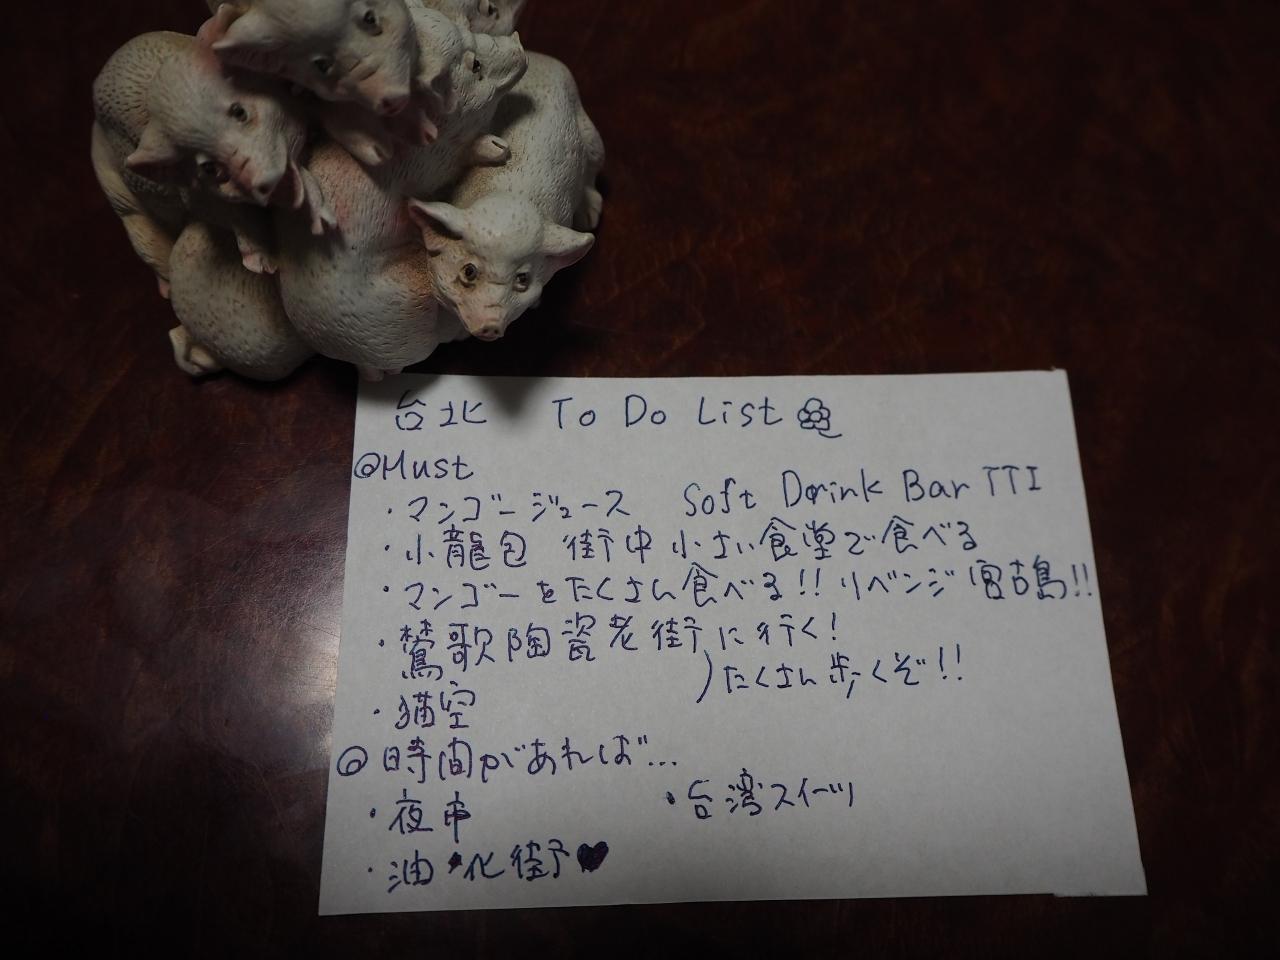 台北 To Do List
◎Must
・マンゴージュース Soft Drink Bar TTI
・小龍包 街中小さい食堂で食べる
・マンゴーをたくさん食べる!! リベンジ宮古島!!
・鶯歌陶瓷老街に行く!
・猫空
)たくさん歩くぞ!!
◎時間があれば…
・夜市
・台湾スイーツ
・油化街♥